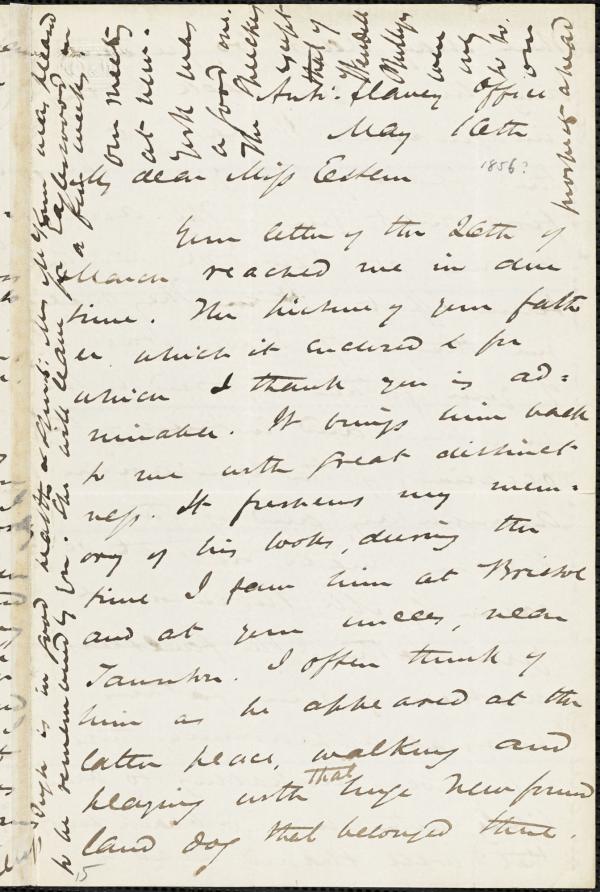 Anti-Slavery Office
May 16th
1856?
My dear Miss Estlin
Your letter of the 26th of
March reached me in due
time. The picture of your fath
er which it enclosed & for
which I thank you is ad=
mirable. It brings him back
to me with great distinct
ness. It freshens my mem=
ory of his looks, during the
time I saw him at Bristol
and at your uncles, near
Taunton. I often think of
him as he appeared at the
latter place, walking and
playing with that huge Newfound
land dog that belonged there.
15
our meeting
at New-
York was
a good one.
The
speech
that of
Wendell
Phillips
on
prospect ahead
is in good health & spirits. Mrs
may heard
to be remembered by you. She will leave for
Eagleswood in
a few weeks